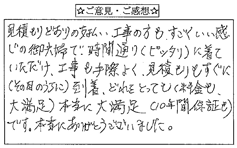 ☆ご意見・ご感想☆
見積もりどおりの支払い、工事の方もすごくいい感
じの御夫婦で、時間通りく(ピッタリ)に着て
いただけ、工事も手際よく、見積もりもすぐに
(その日のうちに)到着、どれをとっても(料金も、
大満足)本当に大満足(10年間保証も)
です。本当にありがとうございました。